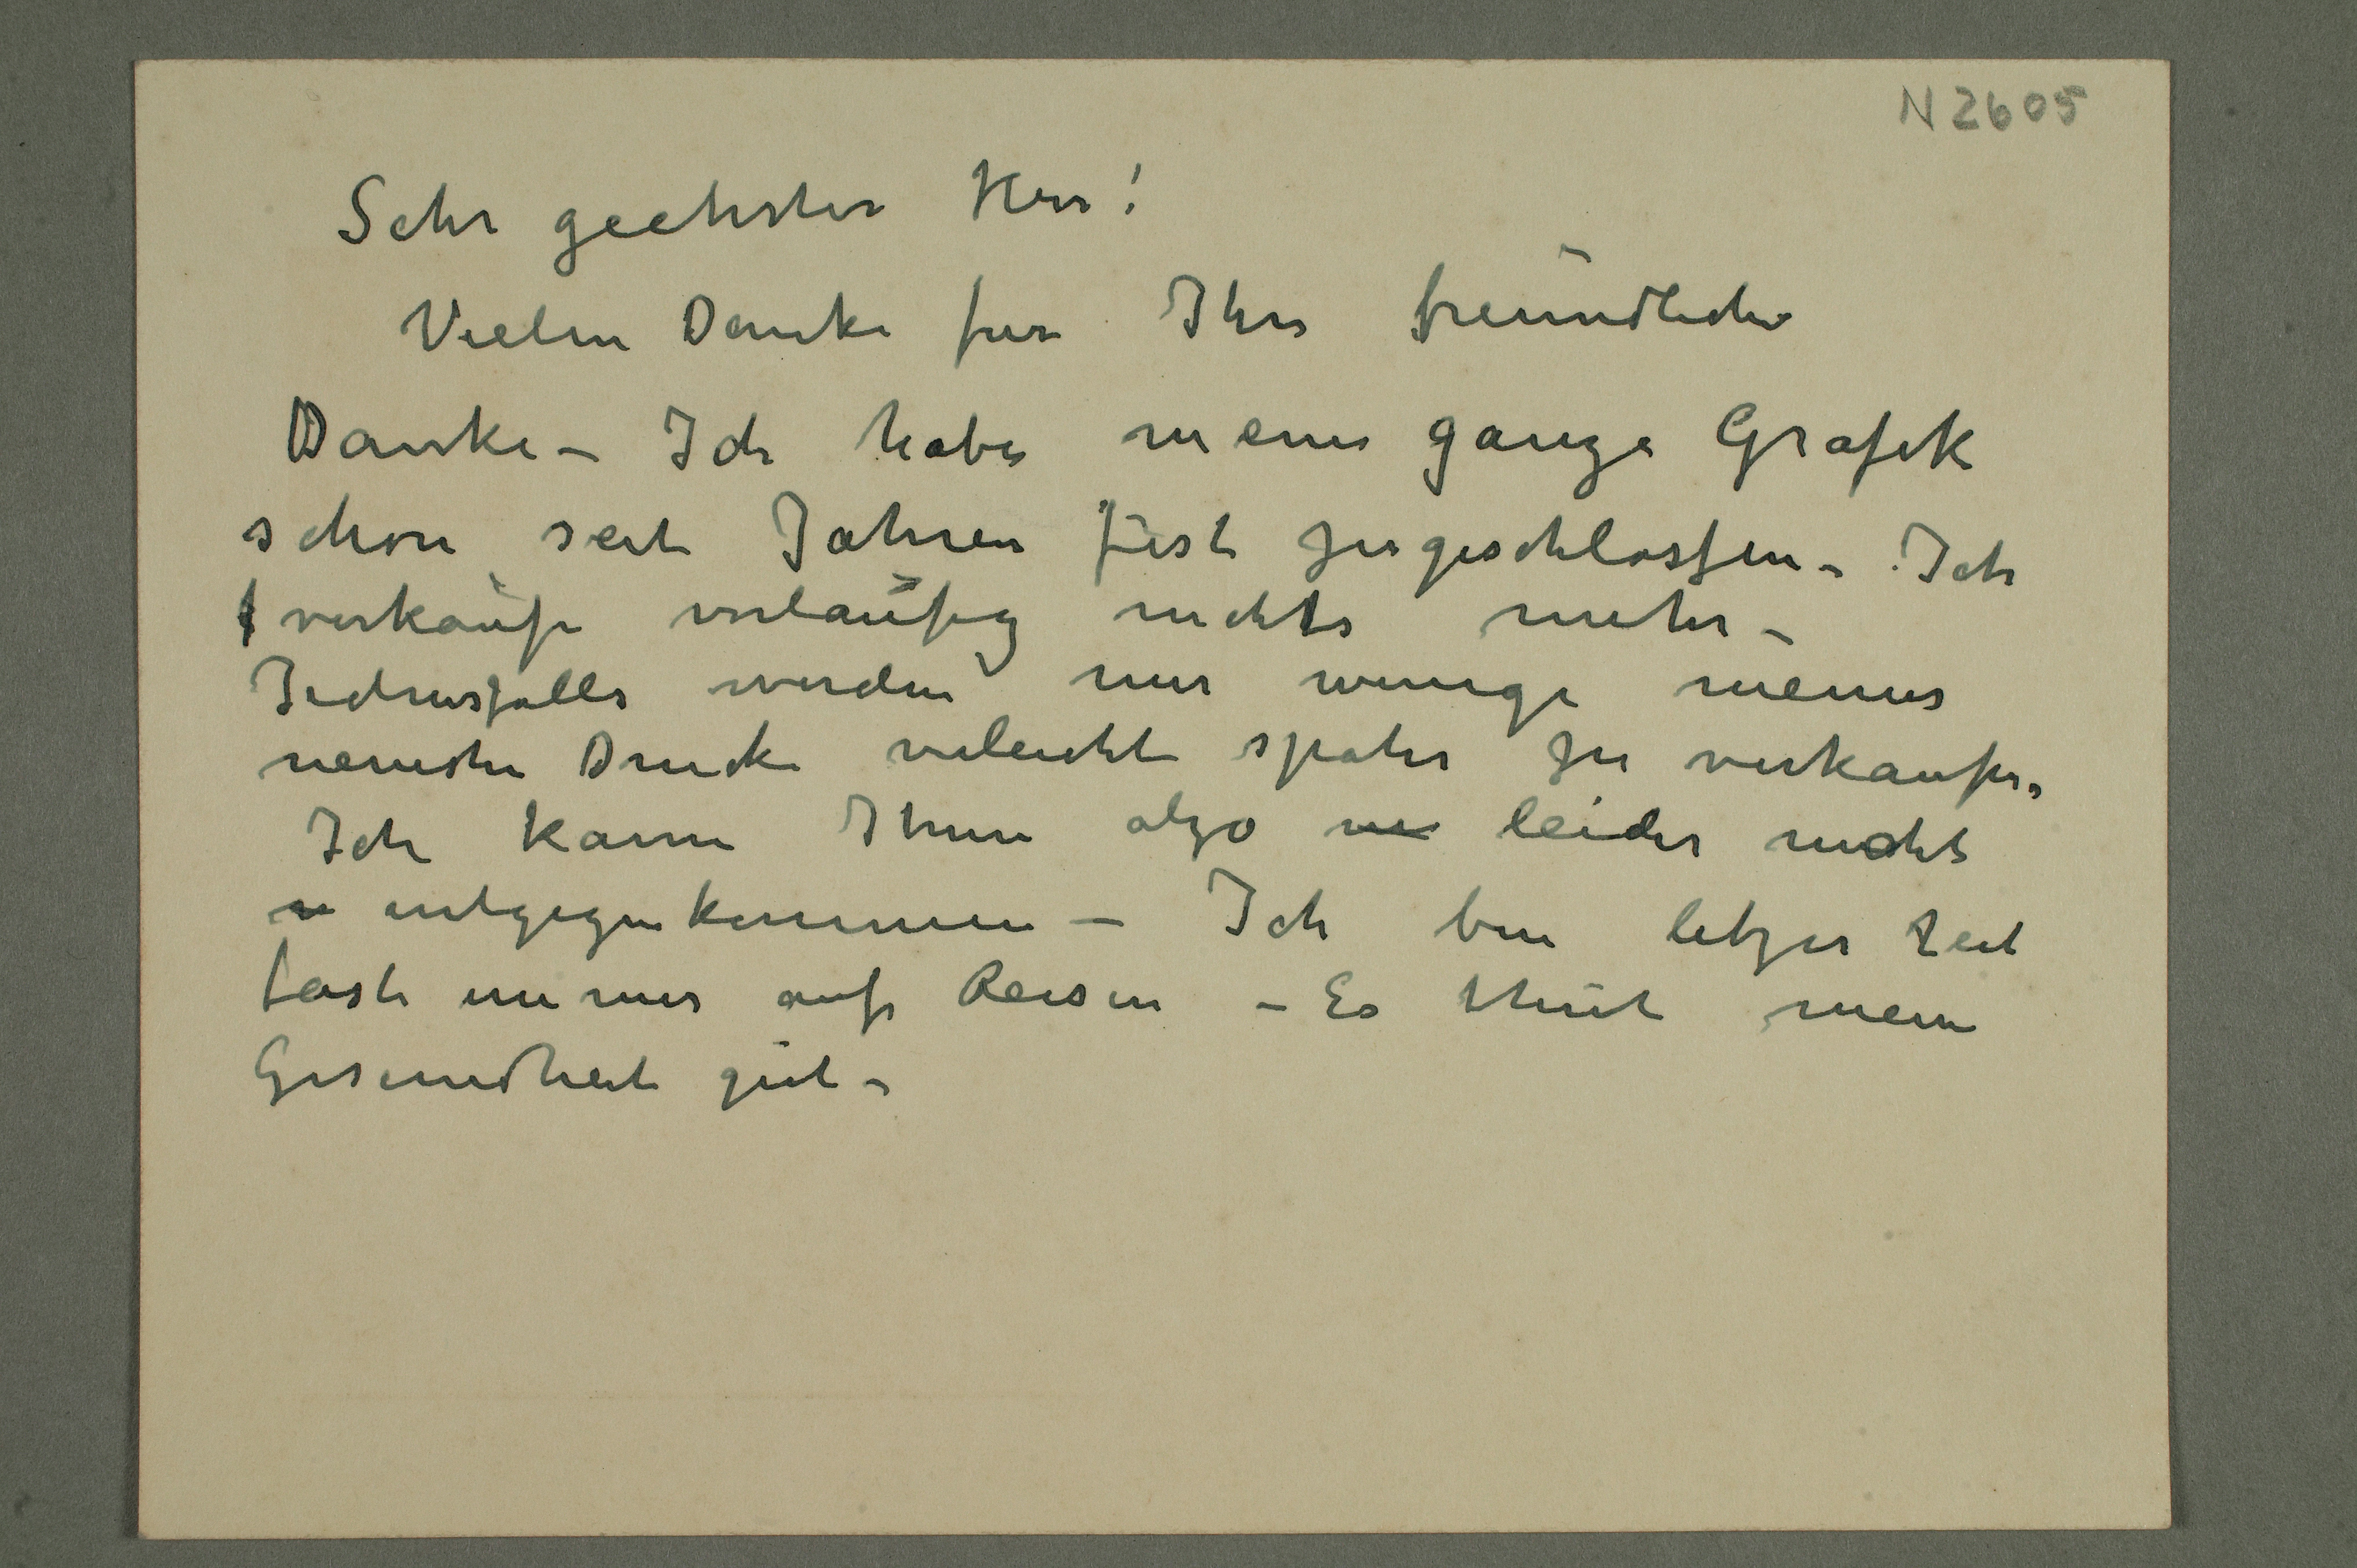 N 2605
Sehr geehrter Herr!
Vielen Danke fur Ihre freundliche
Danke – Ich habe meine ganze Grafik
schon seit Jahren fest zugeschlossen – Ich
verkaufe vorlaüfig nichts mehr –
Jedensfalls werden nur wenige meiner
neueste Drucke vieleicht spater zu verkaufen.
Ich kann Ihnen also leider nicht
entgegenkommen – Ich bin letzer Zeit
fast immer auf Reisen – Es thut mein
Gesundheit gut –